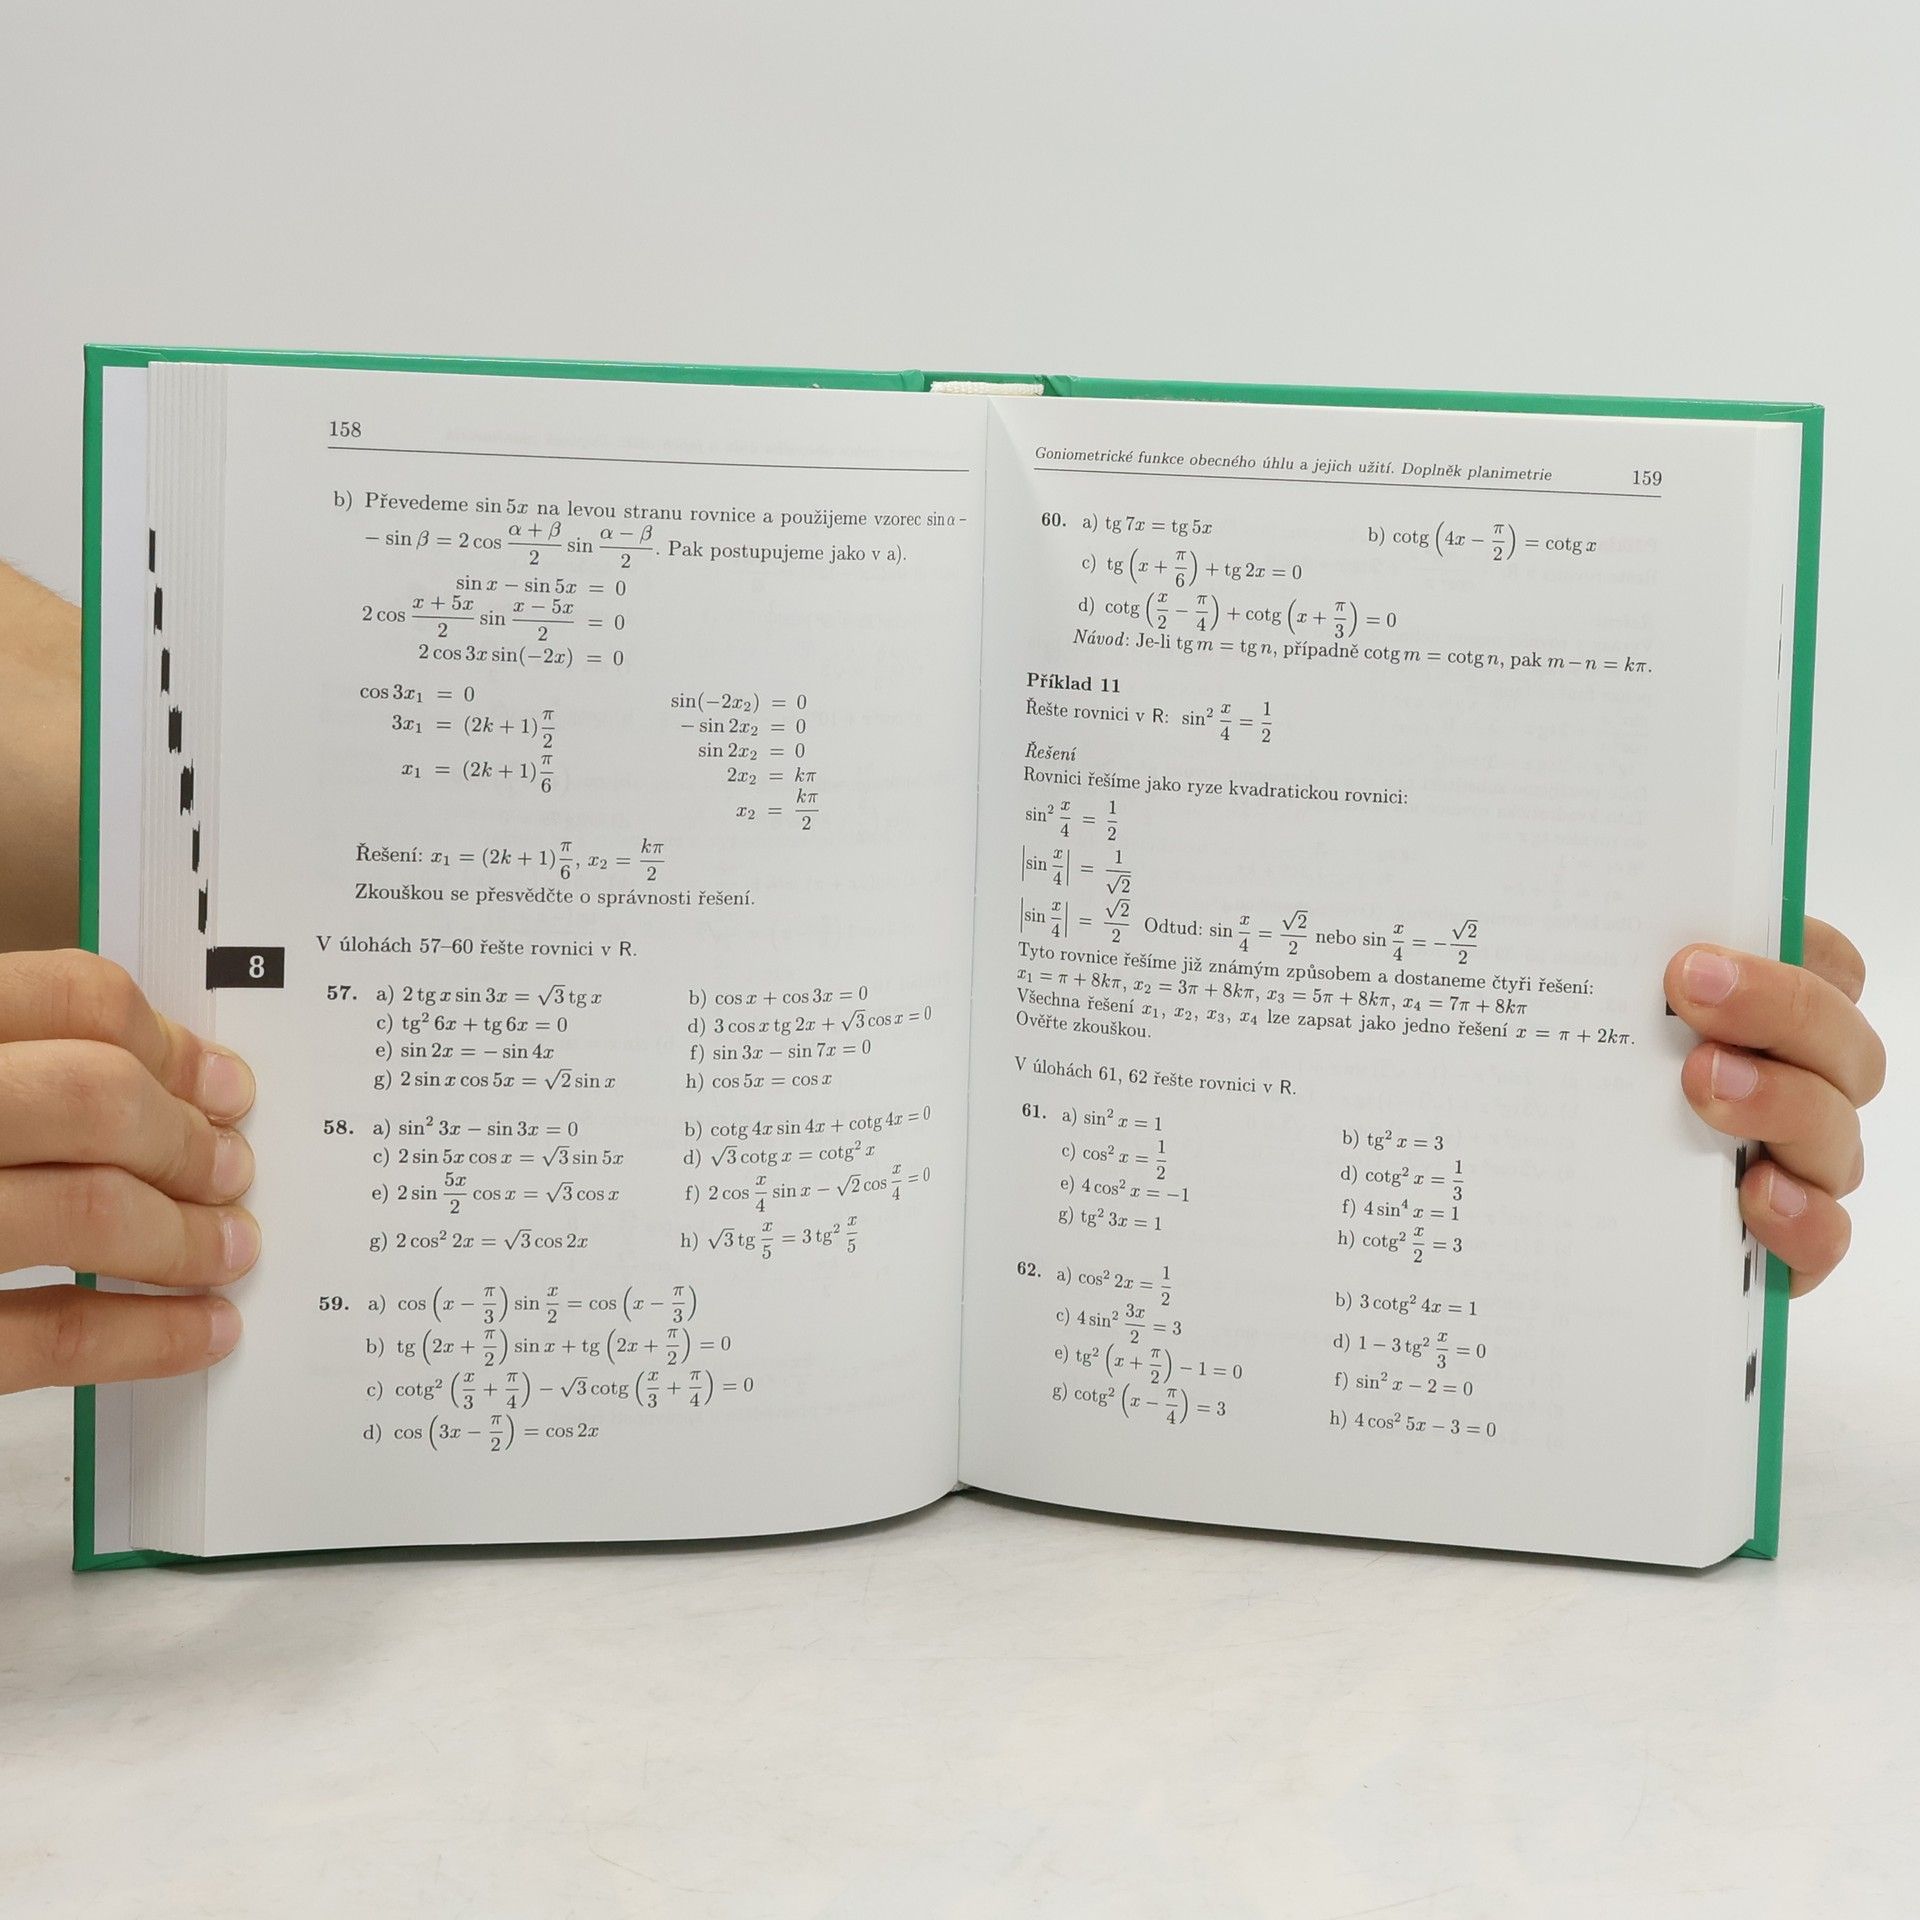 158
b) Převedeme sin 5x na levou stranu rovnice a použijeme vzorec sin α −
− sin β = 2 cos (α + β)/2 sin (α − β)/2. Pak postupujeme jako v a).
sin x − sin 5x = 0
2 cos (x + 5x)/2 sin (x − 5x)/2 = 0
2 cos 3x sin(−2x) = 0
cos 3x₁ = 0
3x₁ = (2k + 1)π/2
x₁ = (2k + 1)π/6
sin(−2x₂) = 0
− sin 2x₂ = 0
sin 2x₂ = 0
2x₂ = kπ
x₂ = kπ/2
Řešení: x₁ = (2k + 1)π/6, x₂ = kπ/2
Zkouškou se přesvědčte o správnosti řešení.
8
V úlohách 57–60 řešte rovnici v R.
57. a) 2 tg x sin 3x = √3 tg x b) cos x + cos 3x = 0
c) tg² 6x + tg 6x = 0 d) 3 cos x tg 2x + √3 cos x = 0
e) sin 2x = − sin 4x f) sin 3x − sin 7x = 0
g) 2 sin x cos 5x = √2 sin x h) cos 5x = cos x
58. a) sin² 3x − sin 3x = 0 b) cotg 4x sin 4x + cotg 4x = 0
c) 2 sin 5x cos x = √3 sin 5x d) √3 cotg x = cotg² x
e) 2 sin 5x/2 cos x = √3 cos x f) 2 cos x/4 sin x − √2 cos x/4 = 0
g) 2 cos² 2x = √3 cos 2x h) √3 tg x/5 = 3 tg² x/5
59. a) cos (x − π/3) sin x/2 = cos (x − π/3)
b) tg (2x + π/2) sin x + tg (2x + π/2) = 0
c) cotg² (x/3 + π/4) − √3 cotg (x/3 + π/4) = 0
d) cos (3x − π/2) = cos 2x
Goniometrické funkce obecného úhlu a jejich užití. Doplněk planimetrie 159
60. a) tg 7x = tg 5x b) cotg (4x − π/2) = cotg x
c) tg (x + π/6) + tg 2x = 0
d) cotg (x/2 − π/4) + cotg (x + π/3) = 0
Návod: Je-li tg m = tg n, případně cotg m = cotg n, pak m − n = kπ.
Příklad 11
Řešte rovnici v R: sin² x/4 = 1/2
Řešení
Rovnici řešíme jako ryze kvadratickou rovnici:
sin² x/4 = 1/2
|sin x/4| = 1/√2
|sin x/4| = √2/2 Odtud: sin x/4 = √2/2 nebo sin x/4 = −√2/2
Tyto rovnice řešíme již známým způsobem a dostaneme čtyři řešení:
x₁ = π + 8kπ, x₂ = 3π + 8kπ, x₃ = 5π + 8kπ, x₄ = 7π + 8kπ
Všechna řešení x₁, x₂, x₃, x₄ lze zapsat jako jedno řešení x = π + 2kπ.
Ověřte zkouškou.
V úlohách 61, 62 řešte rovnici v R.
61. a) sin² x = 1 b) tg² x = 3
c) cos² x = 1/2 d) cotg² x = 1/3
e) 4 cos² x = −1 f) 4 sin⁴ x = 1
g) tg² 3x = 1 h) cotg² x/2 = 3
62. a) cos² 2x = 1/2 b) 3 cotg² 4x = 1
c) 4 sin² 3x/2 = 3 d) 1 − 3 tg² x/3 = 0
e) tg² (x + π/2) − 1 = 0 f) sin² x − 2 = 0
g) cotg² (x − π/4) = 3 h) 4 cos² 5x − 3 = 0